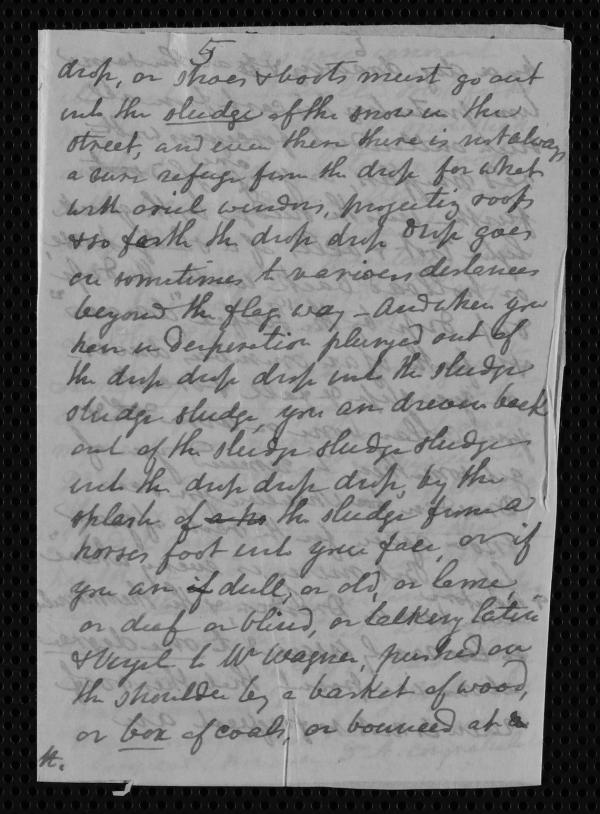 5
drop, or shoes & boots must go out
into the sludge of the snow in the
street, and even there there is not always
a sure refuge from the drop for what
with oriel windows, projecting roofs
& so forth the drop drop drop goes
on sometimes to various distances
beyond the flag way - And when you
have in desperation plunged out of
the drop drop drop into the sludge
sludge sludge, you are driven back
out of the sludge sludge sludge
into the drop drop drop, by the
splash of the sludge from a
horses foot into your face, or if
you are if dull, or old, or lame,
or deaf or blind, or talking latin
& Virgil to Mr Wagner, pushed on
the shoulder by a basket of wood,
or box of coals, or bounced at a